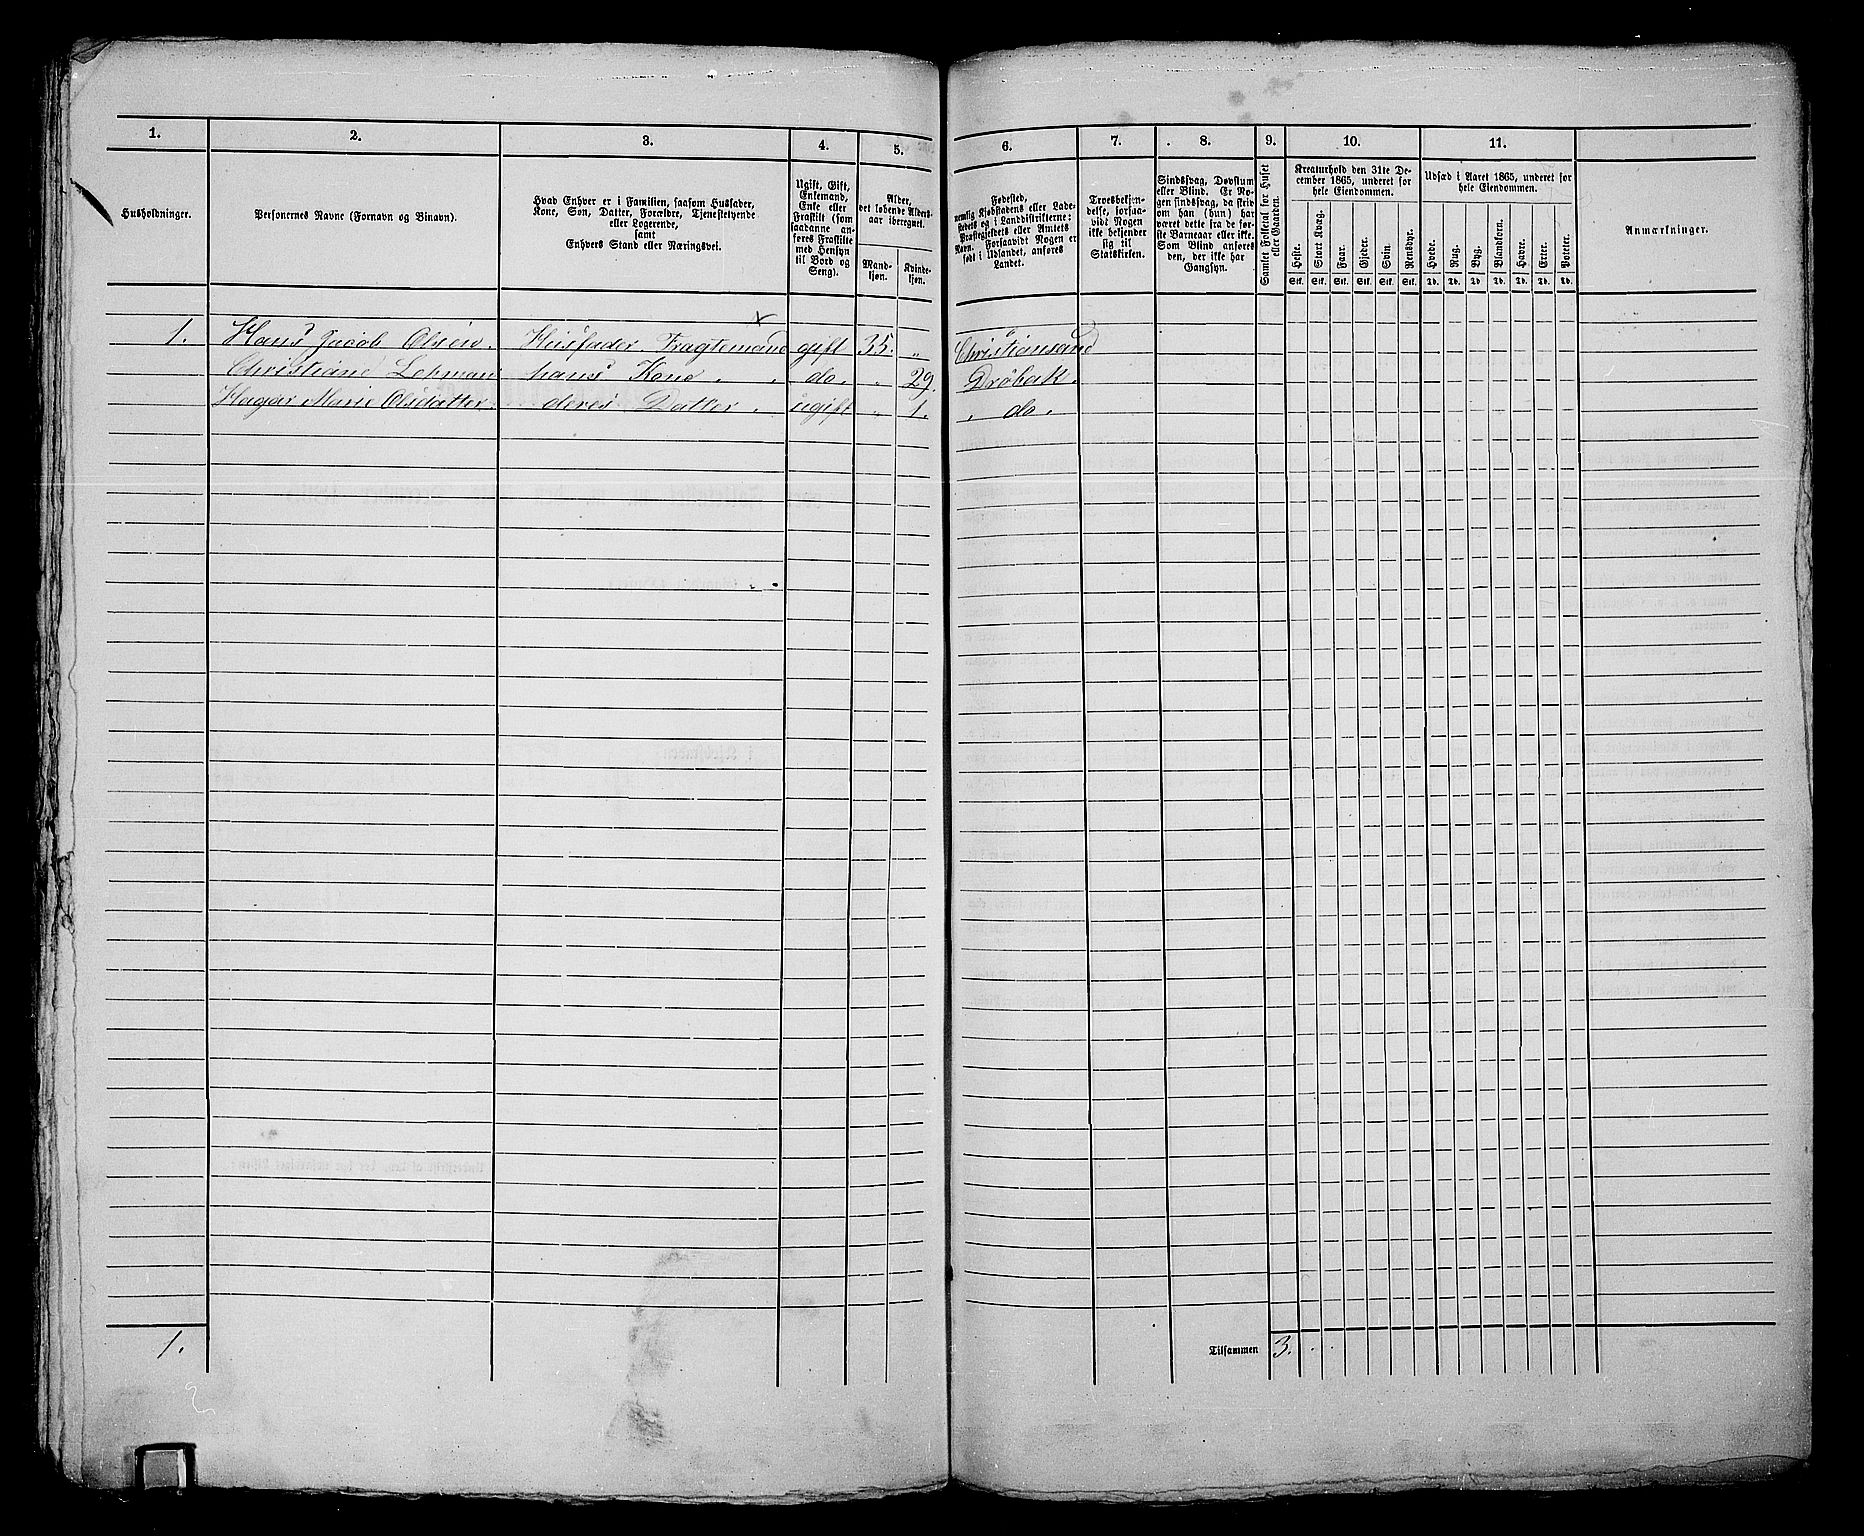 1. 2. 3. 4. 5. 6. 7. 8. 9. 10. 11.
Husholdninger.
Personernes Navne (Fornavn og Binavn).
Hvad Enhver er i Familien, saasom Husfader,
Kone, Søn, Datter, Forældre, Tjenestetyende
eller Logerende,
samt
Enhvers Stand eller Næringsvei.
Ugift, Gift,
Enkemand,
Enke eller
Fraskilt (som
saadanne an-
føres Fraskilte
med Hensyn
til Bord og
Seng).
Alder,
det løbende Alders-
aar iberegnet.
Mand-
kjøn.
Kvinde-
kjøn.
Fødested,
nemlig Kjøbstadens eller Lade-
stedets og i Landdistrikterne:
Præstegjeldets eller Amtets
Navn. Forsaavidt Nogen er
født i Udlandet, anføres
Landet.
Troesbekjen-
delse, forsaa-
vidt Nogen
ikke bekjender
sig til
Statskirken.
Sindssvag, Døvstum
eller Blind. Er No-
gen sindssvag, da skriv
om han (hun) har
været dette fra de før-
ste Barneaar eller ikke.
Som Blind anføres
den, der ikke har
Gangsyn.
Samlet Folketal for Huset
eller Gaarden.
Kreaturhold den 31te De-
cember 1865, underet for
hele Eiendommen.
Heste. Stort Kvæg. Faar. Gjeder. Svin. Rensdyr.
Stk. Stk. Stk. Stk. Stk. Stk.
Udsæd i Aaret 1865, underet for
hele Eiendommen.
Hvede. Rug. Byg. Blandkorn. Havre. Erter. Poteter.
Td. Td. Td. Td. Td. Td. Td.
Anmærkninger.
1. Hans Jacob Olsen. Husfader. Fragtemand gift 35. " Christiansand
Christiane Lehman hans Kone. do. " 29. Dröbak.
Hagar Marie Olsdatter. deres Datter. ugift " 1. " do.
1.
Tilsammen 3.